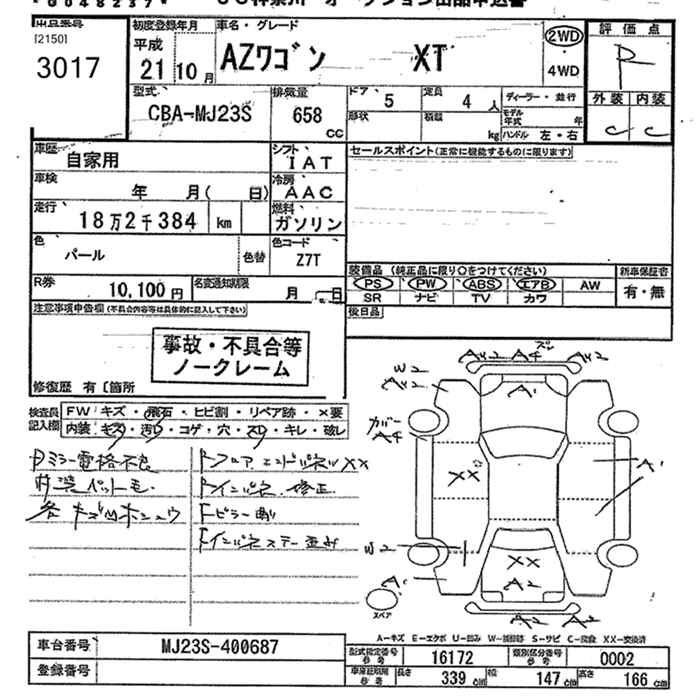 3017
[2150]
初度登録年月
平成
21 10月
車名・グレード
AZワゴン XT
2WD
・
4WD
評価点
R
外装 内装
C C
型式
CBA-MJ23S
排気量
658
CC
ドア 5
定員 4 人
形状
積載 kg
ディーラー・並行
モデル年式 年
ハンドル 左・右
車歴
自家用
シフト
IAT
セールスポイント(正常に機能するものに限ります)
車検
年 月( 日)
冷房
AAC
走行
18万2千384 km
燃料
ガソリン
色
パール
色替
色コード
Z7T
R券
10,100円
名変通知期限
月 日
装備品(純正品に限り○をつけてください)
新車保証書
PS PW ABS エアB AW
SR ナビ TV カワ
有・無
後日品
注意事項申告欄(不具合内容等は具体的に記入して下さい)
事故・不具合等
ノークレーム
修復歴 有〔箇所
検査員
記入欄
FW キズ・飛石・ヒビ割・リペア跡・×要
内装 キズ・汚レ・コゲ・穴・スレ・キレ・破レ
ミラー電格不良
各キズ凹ホシュウ
フロアエンドパネルXX
インパネ修正
Fピラー
インパネステー歪み
W2
A2 A4 A2
A1
カバー
A4
XX
A1
W2
XX
A2
A1
スペア
A2 A2
A-キズ E-エクボ U-凹み W-補修跡 S-サビ C-腐食 XX-交換済
車台番号
MJ23S-400687
型式指定番号
参考
16172
類別区分番号
参考
0002
登録番号
車庫証明用
参考
長さ 339 cm
幅 147 cm
高さ 166 cm